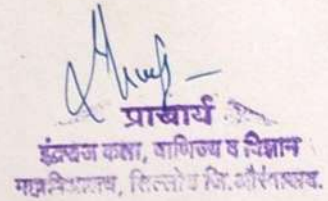 प्राचार्य
इंद्रराज कला, वाणिज्य व विज्ञान
महाविद्यालय, सिल्लोड जि.औरंगाबाद.